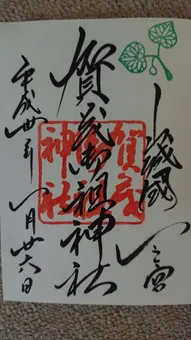 山城國一之宮
賀茂御祖神社
平成年月廿六日
賀茂
御祖
神社